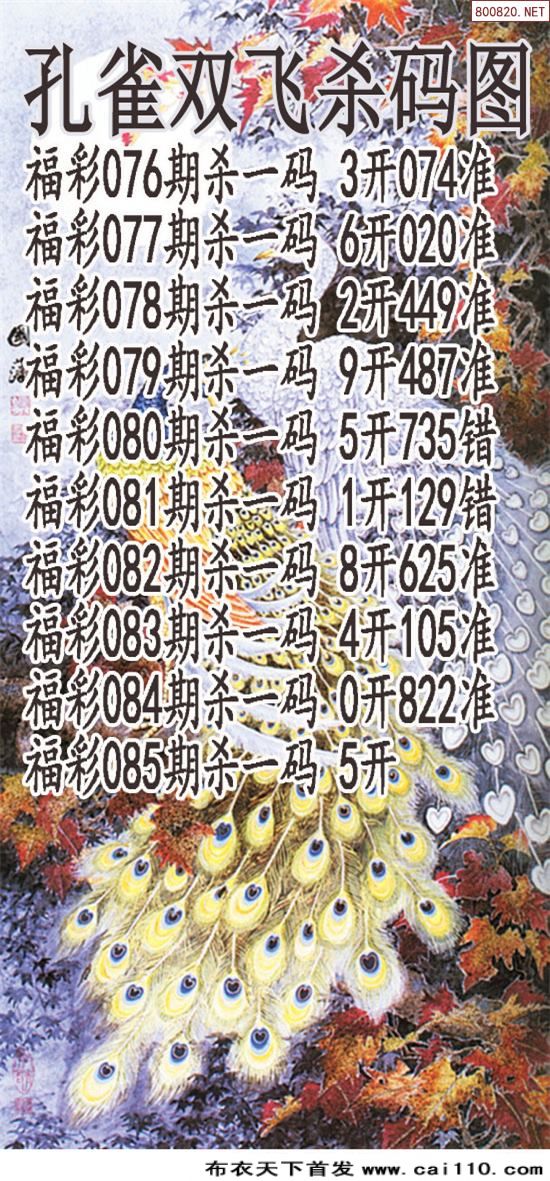 800820.NET
孔雀双飞杀码图
福彩076期杀一码 3开074准
福彩077期杀一码 6开020准
福彩078期杀一码 2开449准
福彩079期杀一码 9开487准
福彩080期杀一码 5开735错
福彩081期杀一码 1开129错
福彩082期杀一码 8开625准
福彩083期杀一码 4开105准
福彩084期杀一码 0开822准
福彩085期杀一码 5开
布衣天下首发 www.cai110.com